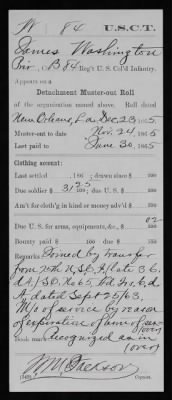 W | 84 | U.S.C.T.
James Washington
Priv., B 84 Reg't U. S. Col'd Infantry.
Appears on a
Detachment Muster-out Roll
of the organization named above. Roll dated
New Orleans, La Dec 23, 1865.
Muster-out to date Nov. 24, 1865
Last paid to June 30, 1865
Clothing account:
Last settled , 186 ; drawn since $ 100
Due soldier $ 3125 100; due U. S. $ 100
Am't for cloth'g in kind or money adv'd $ 100
Due U. S. for arms, equipments, &c., $ 02 100
Bounty paid $ 100; due $ 100
Remarks: Joined by transfer
dated Sept 25/63,
M/o of service by reason
of expiration of term of
(over)
Book mark: Recognized as in
(over)
Copyist.